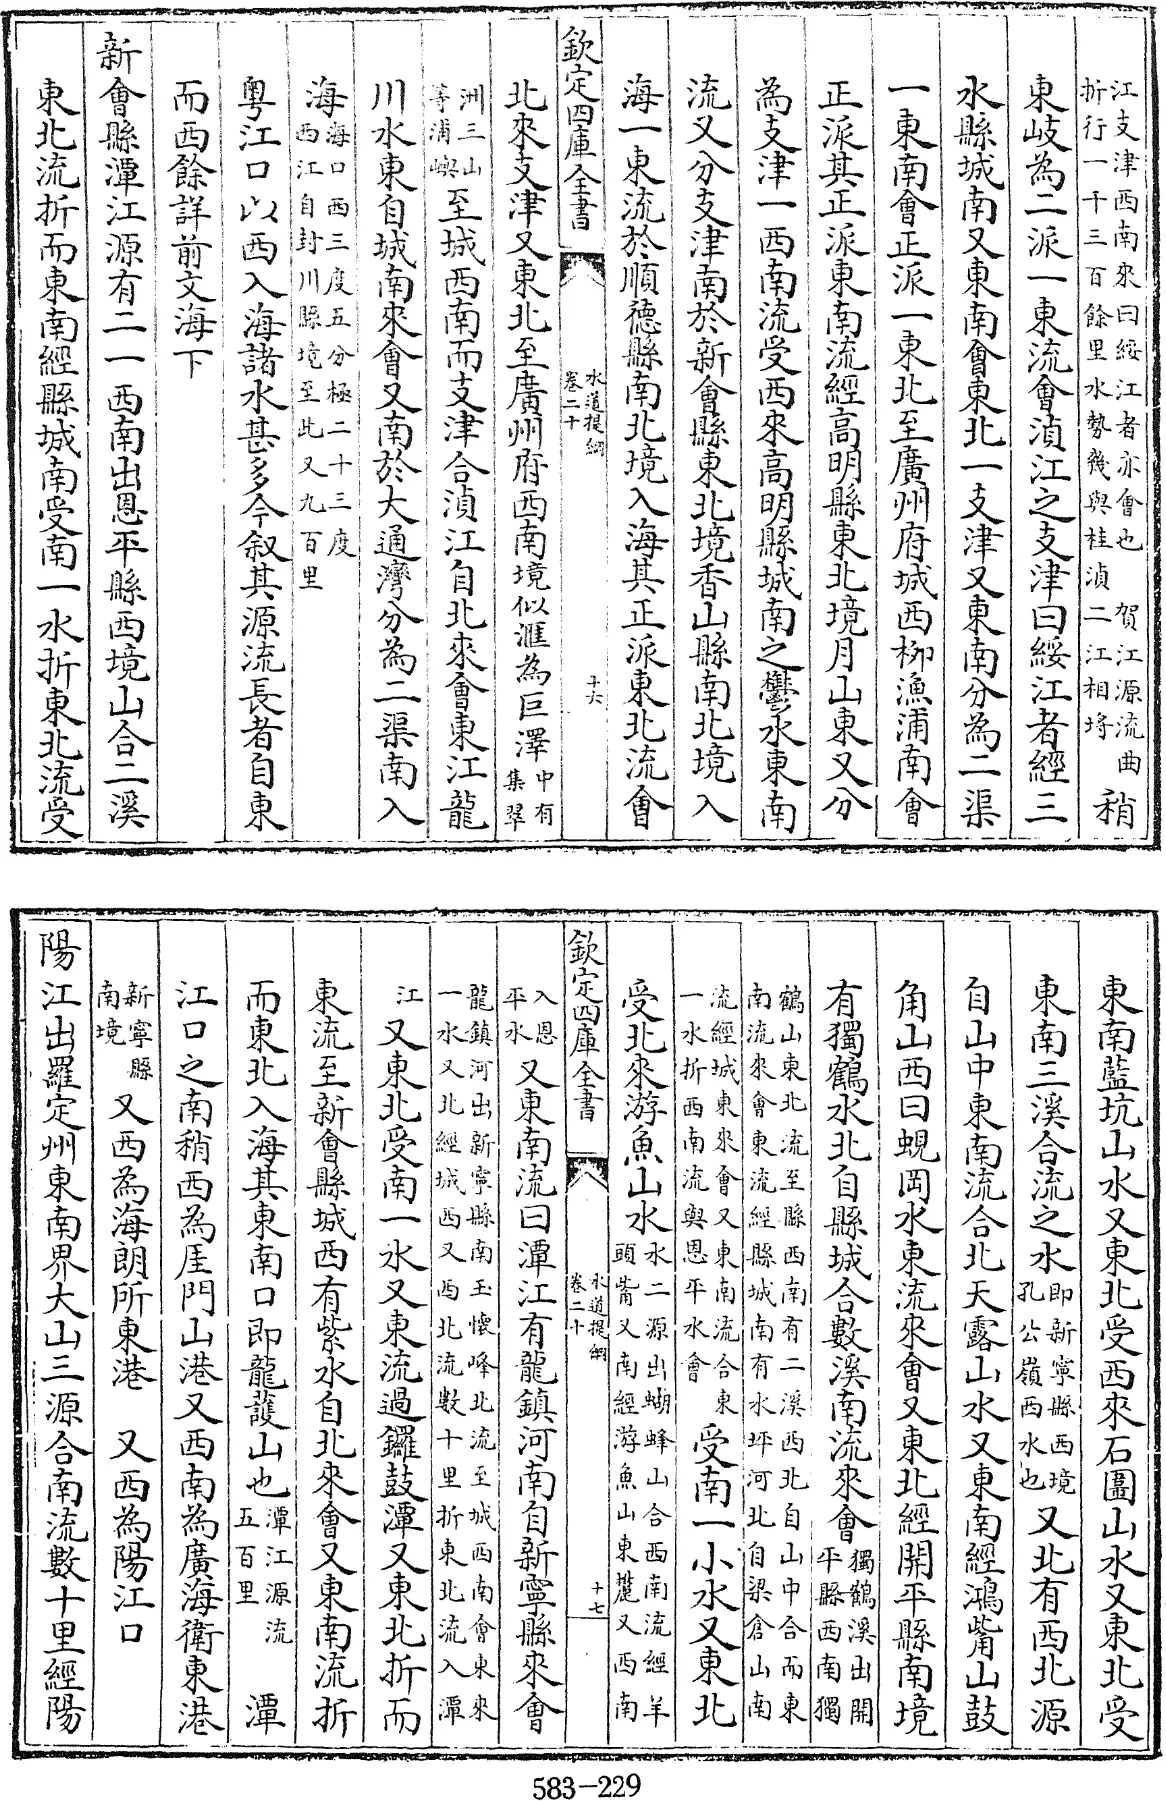 江支津西南來曰綏江者亦會也　賀江源流曲
折行一千三百餘里水勢幾與桂湞二江相埒
稍
東岐為二派一東流會湞江之支津曰綏江者經三
水縣城南又東南會東北一支津又東南分為二渠
一東南會正派一東北至廣州府城西柳漁浦南會
正派其正派東南流經高明縣東北境月山東又分
為支津一西南流受西來高明縣城南之鬱水東南
流又分支津南於新會縣東北境香山縣南北境入
海一東流於順德縣南北境入海其正派東北流會
欽定四庫全書
水道提綱
卷二十
十六
北來支津又東北至廣州府西南境似滙為巨澤
中有
集翠
洲三山
等浦嶼
至城西南而支津合湞江自北來會東江龍
川水東自城南來會又南於大通灣分為二渠南入
海
海口西三度五分極二十三度
西江自封川縣境至此又九百里
粵江口以西入海諸水甚多今叙其源流長者自東
而西餘詳前文海下
新會縣潭江源有二一西南出恩平縣西境山合二溪
東北流折而東南經縣城南受南一水折東北流受
東南藍坑山水又東北受西來石圖山水又東北受
東南三溪合流之水
即新寧縣西境
孔公嶺西水也
又北有西北源
自山中東南流合北天露山水又東南經鴻觜山鼓
角山西曰蜆岡水東流來會又東北經開平縣南境
有獨鶴水北自縣城合數溪南流來會
獨鶴溪出開
平縣西南獨
鶴山東北流至縣西南有二溪西北自山中合而東
南流來會東流經縣城南有水坪河北自梁倉山南
流經城東來會又東南流合東
一水折西南流與恩平水會
受南一小水又東北
受北來游魚山水
水二源出蝴蜂山合西南流經羊
頭觜又南經游魚山東麓又西南
入恩
平水
又東南流曰潭江有龍鎮河南自新寧縣來會
龍鎮河出新寧縣南玉懷峰北流至城西南會東來
一水又北經城西又西北流數十里折東北流入潭
江
又東北受南一水又東流過鑼鼓潭又東北折而
東流至新會縣城西有紫水自北來會又東南流折
而東北入海其東南口即龍護山也
潭江源流
五百里
潭
江口之南稍西為厓門山港又西南為廣海衛東港
新寧縣
南境
又西為海朗所東港　又西為陽江口
陽江出羅定州東南界大山三源合南流數十里經陽
欽定四庫全書
水道提綱
卷二十
十七
583-229